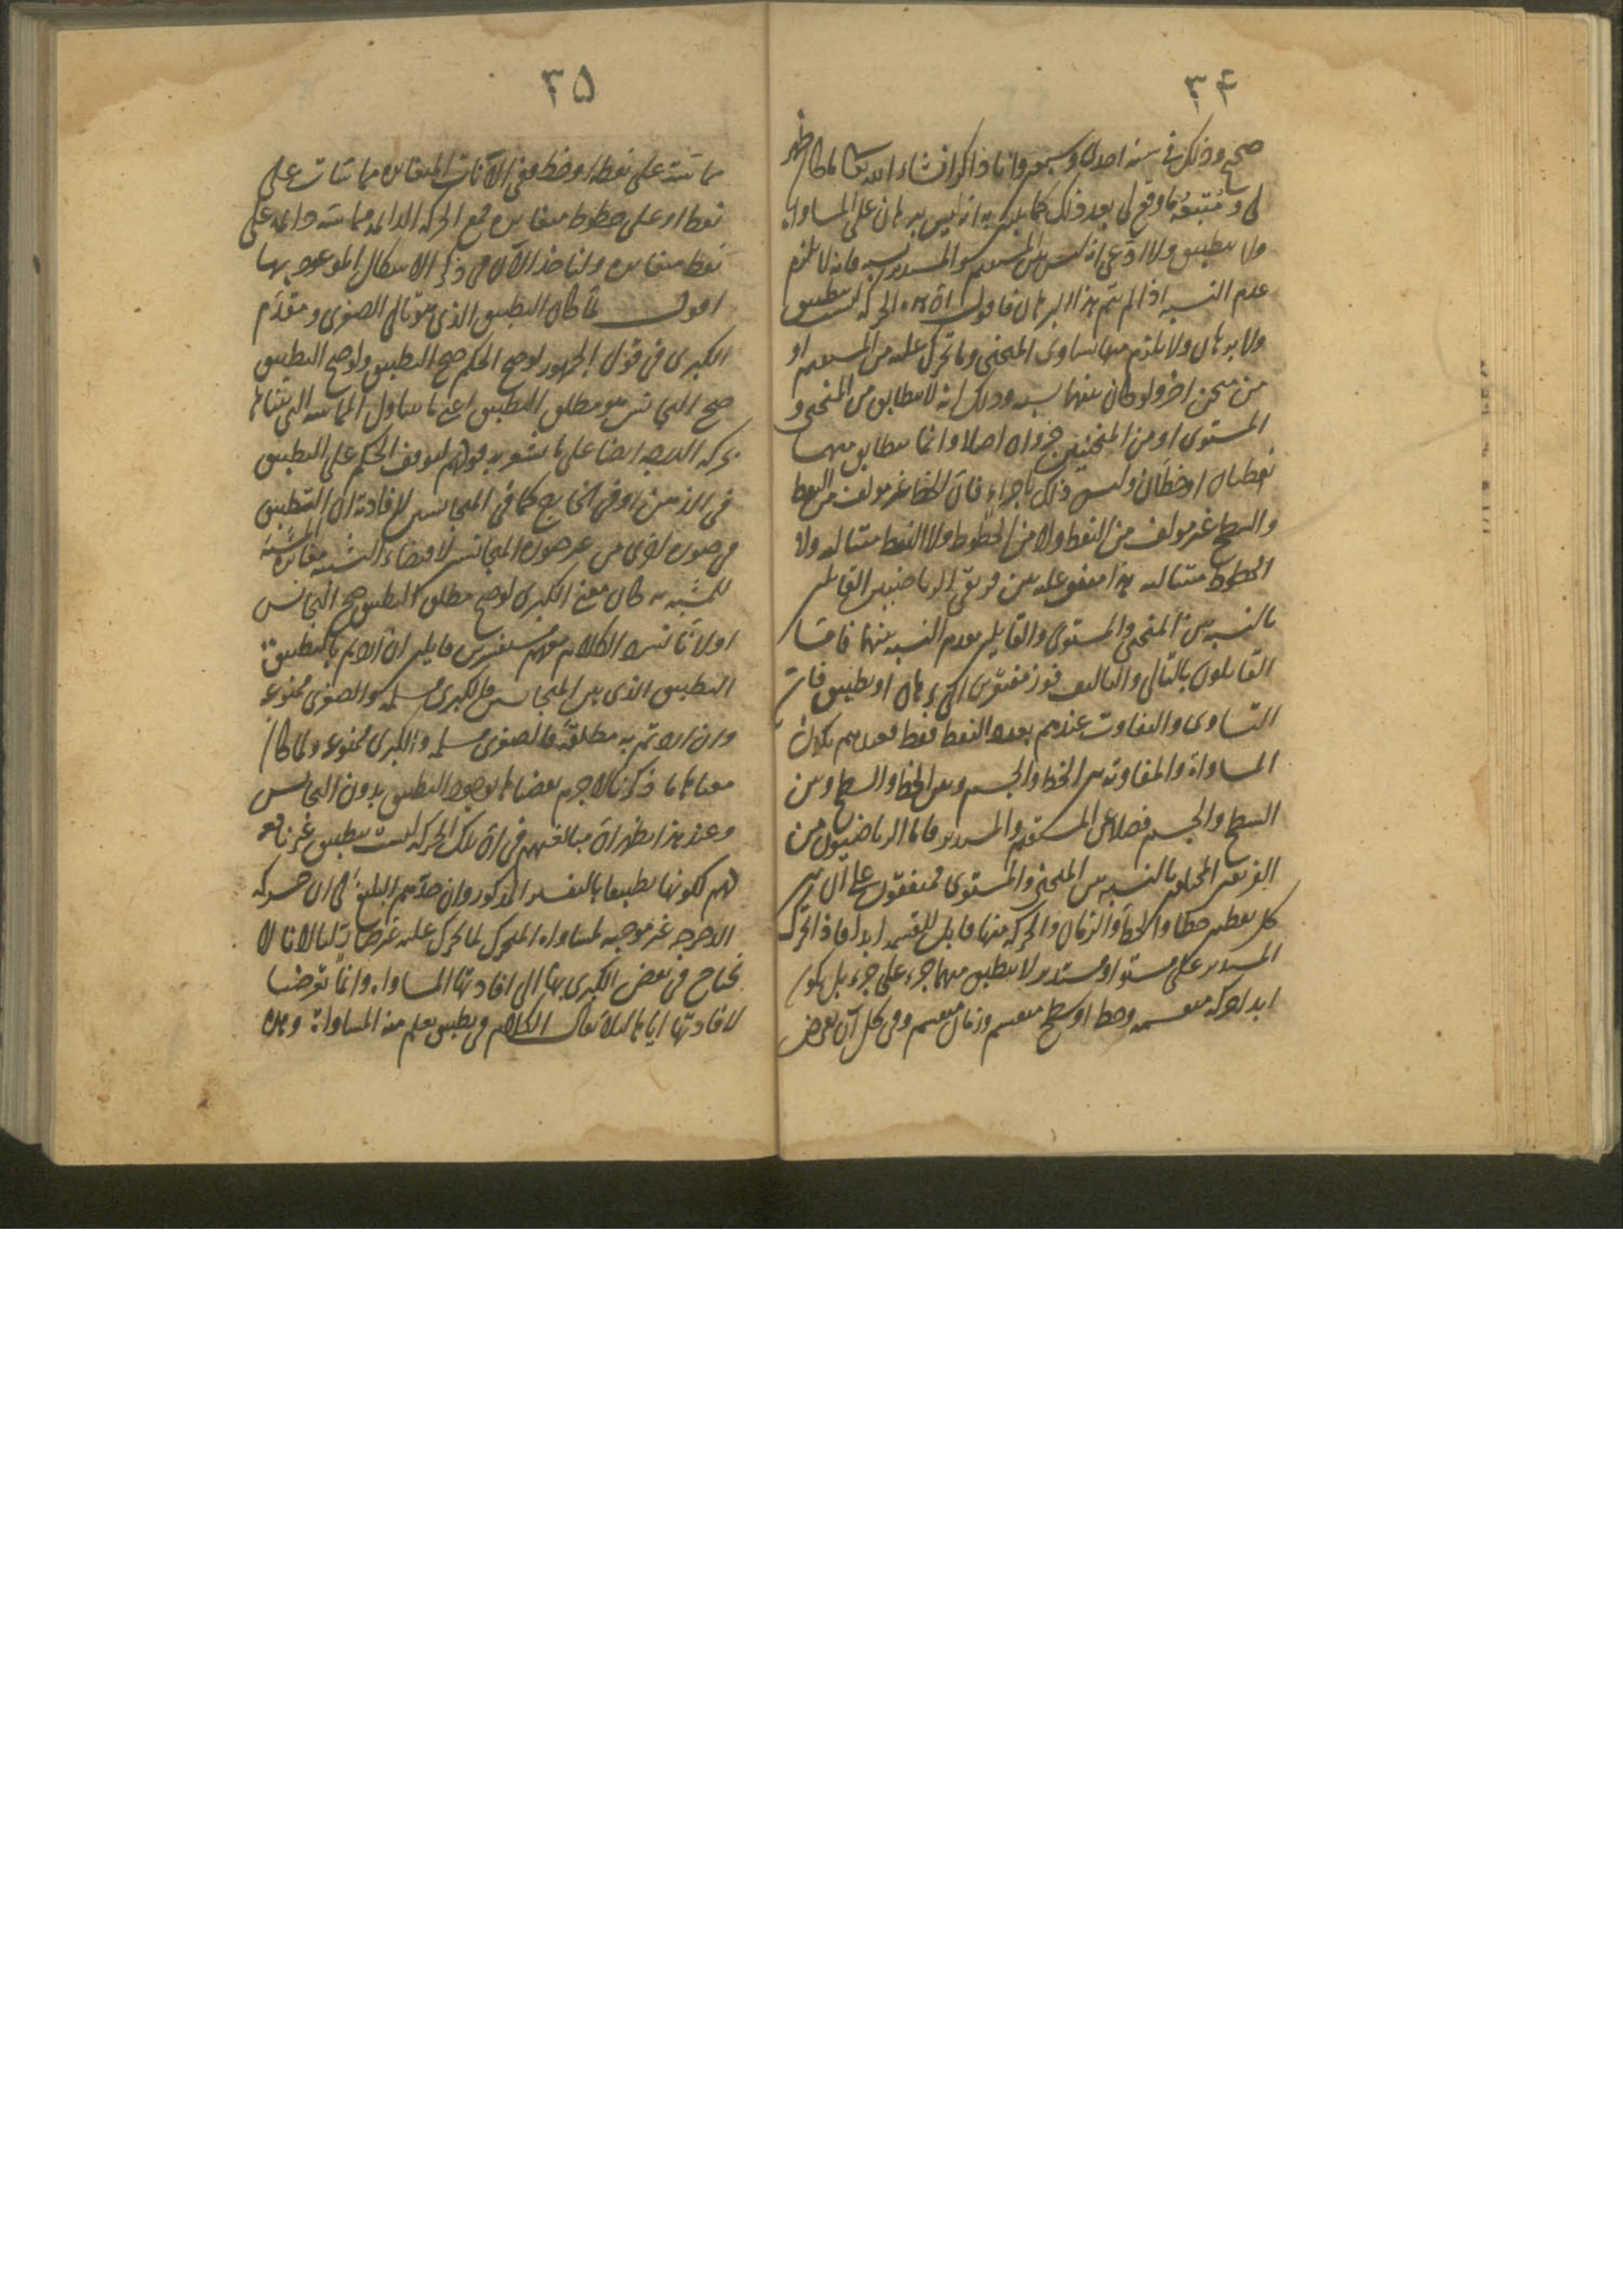 ٣٤
صحح وذلك في سنه احدى وسبعين وانا ذاكر انشاء الله تعالى
لي بعد ذلك ببرهان على المساواه
ولا تطبيق ولا ادعى انه ليس بين المستقيم والمستدير نسبه فانه لا يلزم
عدم النسبه اذا لم يتم هذا البرهان فاقول ان هذه الحركه ليست بتطبيق
ولا برهان ولا يلزم منها تساوى المنحنى وما تحرك عليه من المستقيم او
من منحن اخر ولو كان بينهما نسبه وذلك انه لا يتطابق من المنحنى و
المستوى او من المنحنيين جزوان اصلا وانما يتطابق منهما
نقطتان او خطان وليس ذلك باجزاء فان الخط غير مولف من النقط
والسطح غير مولف من النقط ولا من الخطوط ولا النقط متتاليه ولا
الخطوط متتاليه هذا متفق عليه بين فريقى الرياضيين القايلين
بالنسبه بين المنحنى والمستوى والقايلين بعدم النسبه بينهما فاما
القايلون بالتتالى والتاليف برهان او تطبيق فان
التساوى والتفاوت عندهم بعدد النقط فقط فعندهم يكون
المساواة والمفاوته بين الخط والجسم وبين الخط والسطح وبين
السطح والجسم فضلا عن المستقيم والمستدير فاما الرياضيون من
الفريقين بالنسبه بين المنحنى والمستوى فمتفقون على ان بين
كل نقطتين خطا وان الخط والزمان والحركه منها قابل للقسمه ابدا فاذا تحرك
المستدير على مستو او مستدير لا ينطبق منهما جزء على جزء بل يكون
ابدا حركه منقسمه وخط او سطح منقسم وزمان منقسم وفى كل آن يعرض
٣٥
مماسته على نقطه او خط ففى الآنات المتغايره مماسات على
نقط او على خطوط متغايره فمع الحركه الدائمه مماسه دائمه على
نقط متغايره ولناخذ الآن فى ذكر الاشكال الموعود بها
اقول لما كان التطبيق الذى هو تالى الصغرى ومقدم
الكبرى فى قول الجمهور لو صح الحكم صح التطبيق ولو صح التطبيق
صح التجانس هو مطلق التطبيق اعنى ما يتناول المماسه التى
بحركه الدحرجه ايضا على ما يشعر به قولهم لتوقف الحكم على التطبيق
فى الذهن او فى الخارج كما فى المتجانسين لافادته ان التطبيق
فى صوره اخرى من غير صوره المتجانس لاقتضاء التشبيه مغايره المشبه
للمشبه به كان معنى الكبرى لو صح مطلق التطبيق صح التجانس
اولا الكلام معهم مستفسرين قايلين ان اردتم بالتطبيق
التطبيق الذى بين المتجانسين فالكبرى مسلمه والصغرى ممنوعه
وان اردتم به مطلقه فالصغرى مسلمه والكبرى ممنوعه ولما كان
معناها ما ذكرنا لا جرم نقضناها بوجود التطبيق بدون التجانس
وعند هذا يظهر ان مبالغتهم فى ان تلك الحركه ليست بتطبيق غير نافعه
لهم لكونها تطبيقا بالتفسير المذكور وان جدهم البليغ فى ان حركه
الدحرجه غير موجبه لمساواه المتحرك لما تحرك عليه غير ضار لنا لانا لا
نحتاج فى نقض الكبرى بها الى افادتها المساواه وانما تعرضنا
لافادتها اياها لئلا يقال الكلام فى تطبيق يعلم منه المساواة وهذه